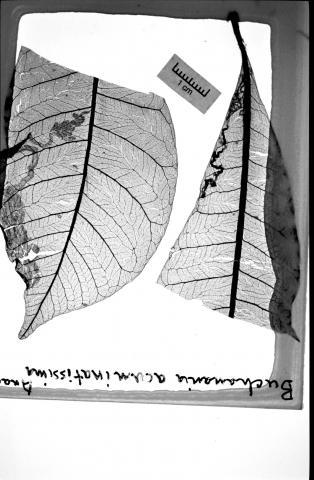 1 cm
Buchanania acuminatissima